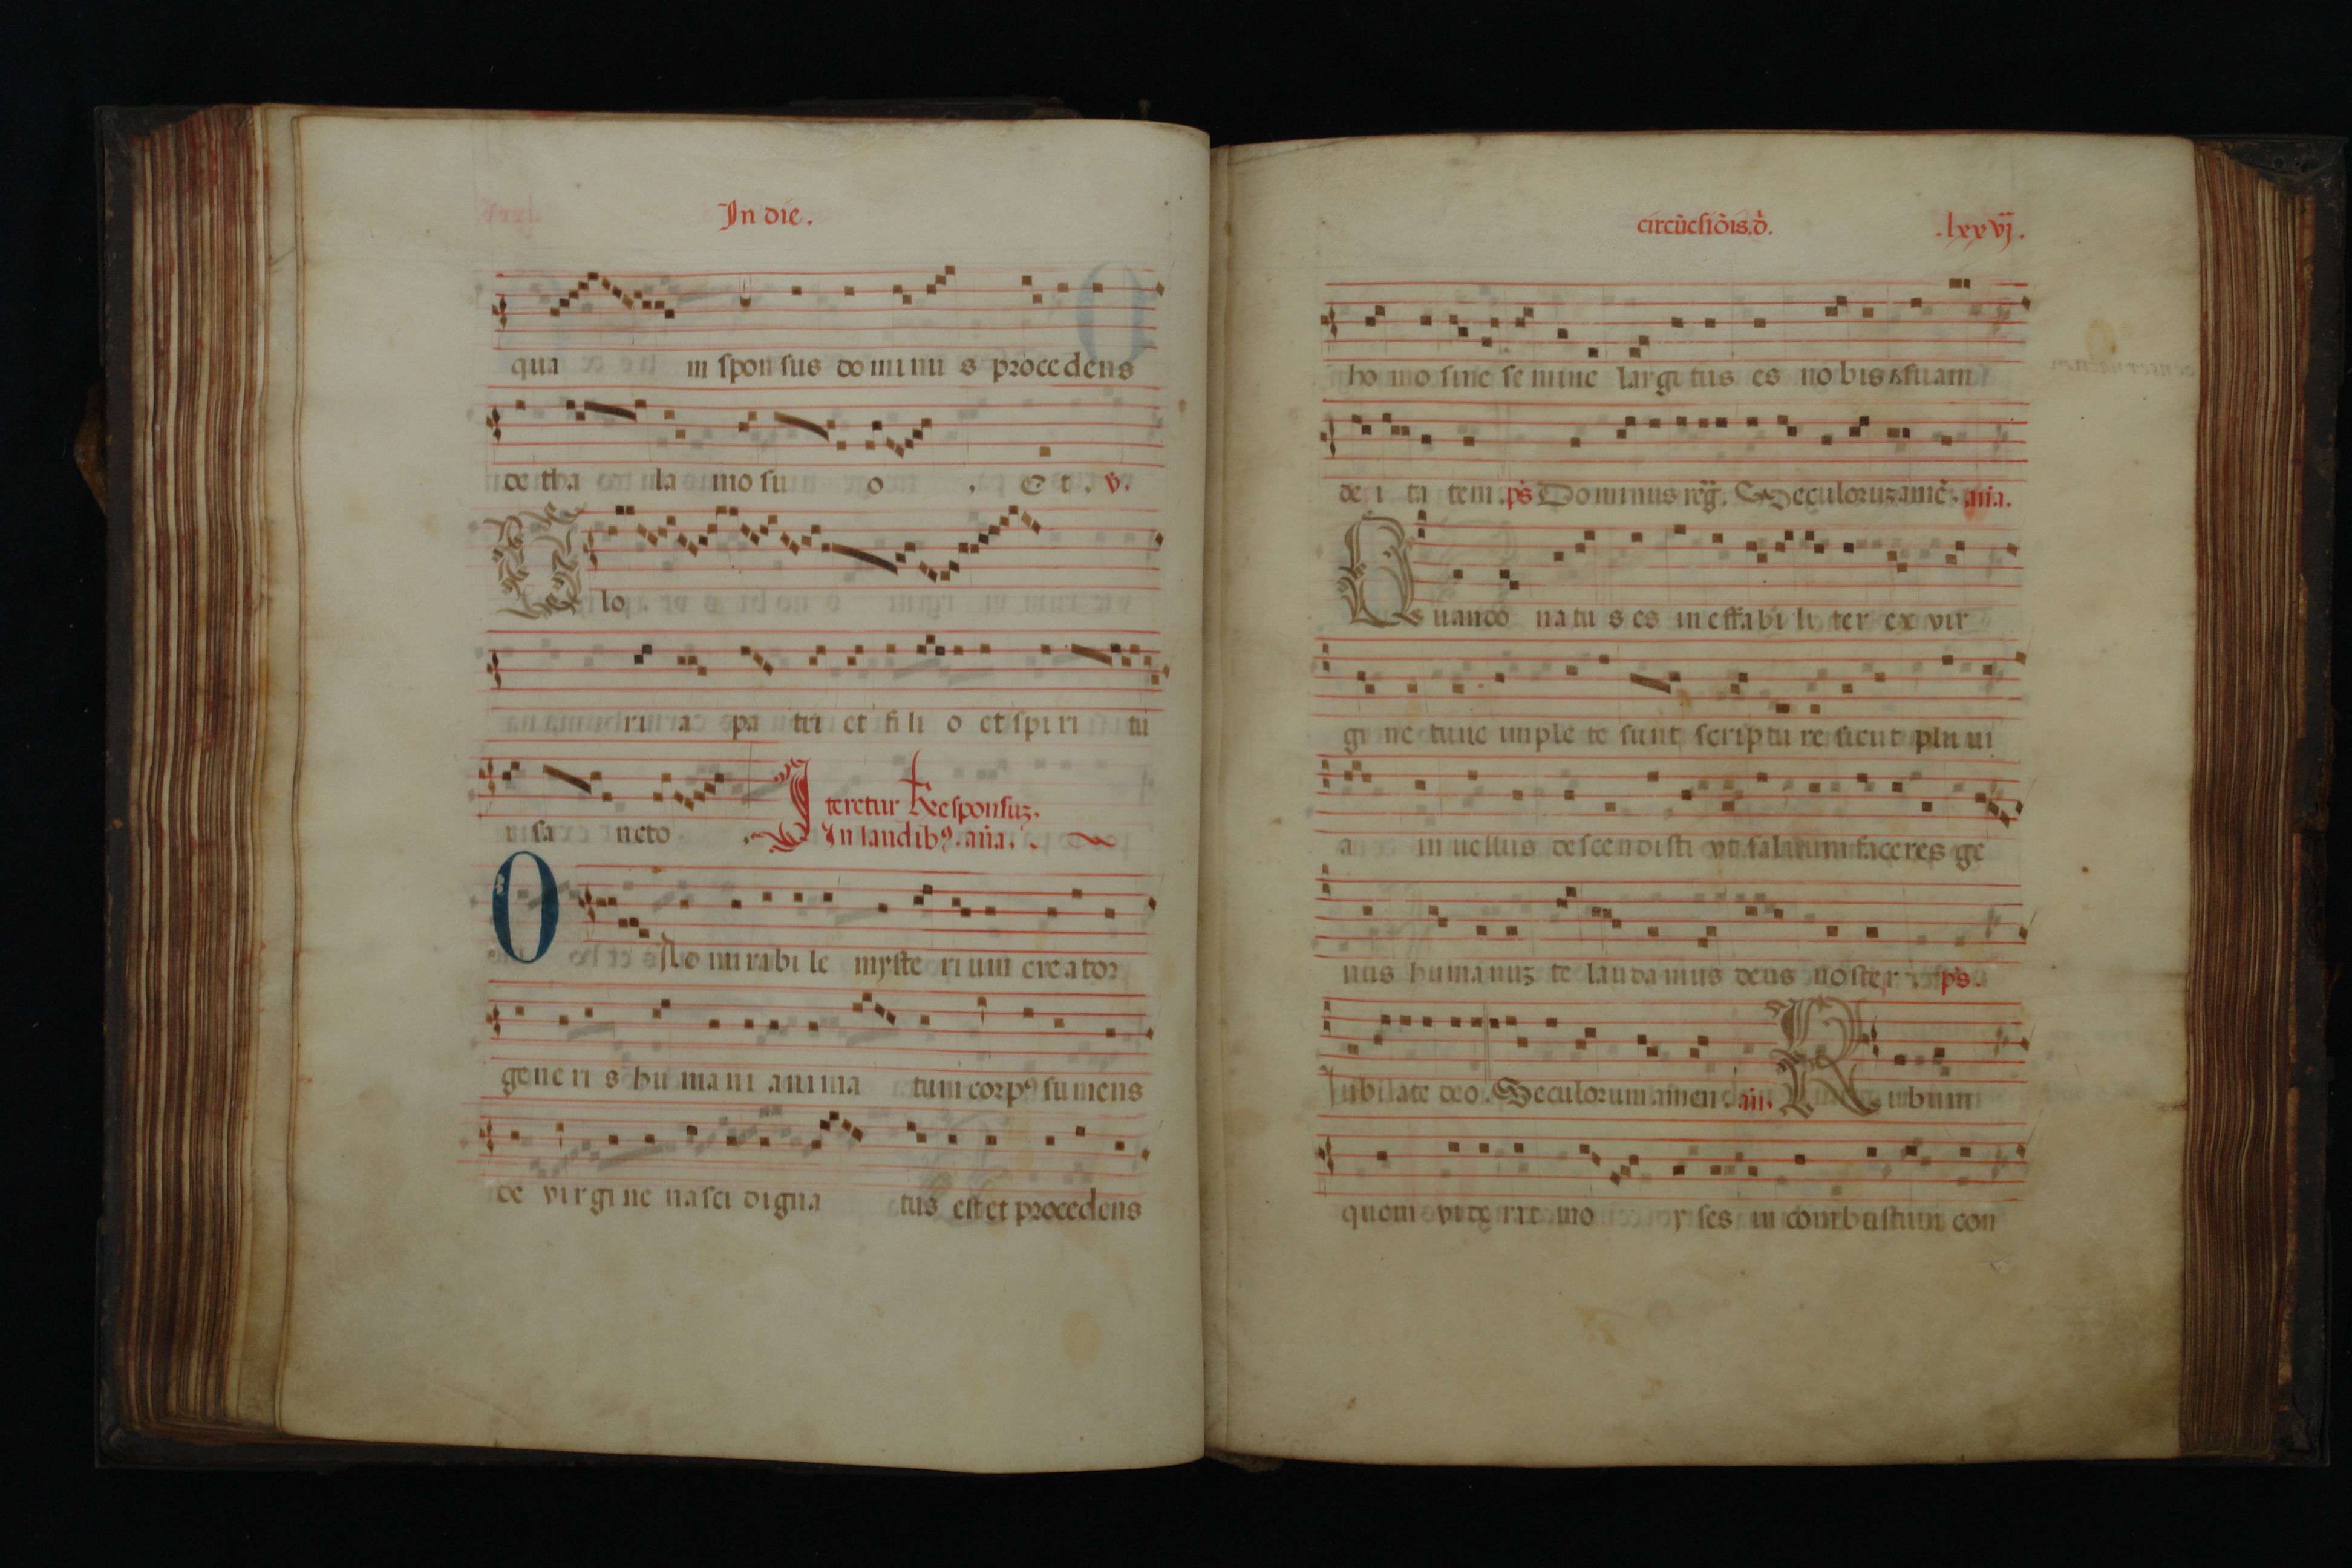 In die.
qua m sponsus dominus procedens
de thalamo suo. Et. v.
Glo
ria patri et filio et spiritu
i sancto
Iteretur Responsuz.
In laudibꝰ. aña.
O Admirabile mysterium creator
generis humani animatum corpꝰ sumens
de virgine nasci dignatus est et procedens
circũcsiõis. d. .lxxvj.
homo sine semine largitus es nobis suam
deitatem. ps Dominus reg̃. Seculoruz amẽ. aña.
Quando natus es ineffabiliter ex vir
gine tunc implete sunt scripture sicut pluui
a in uellus descendisti vt saluum faceres ge
nus humanuz te laudamus deus noster. ps.
Iubilate deo. Seculorum amen. añ. Rubum
quem viderat moyses incombustum con